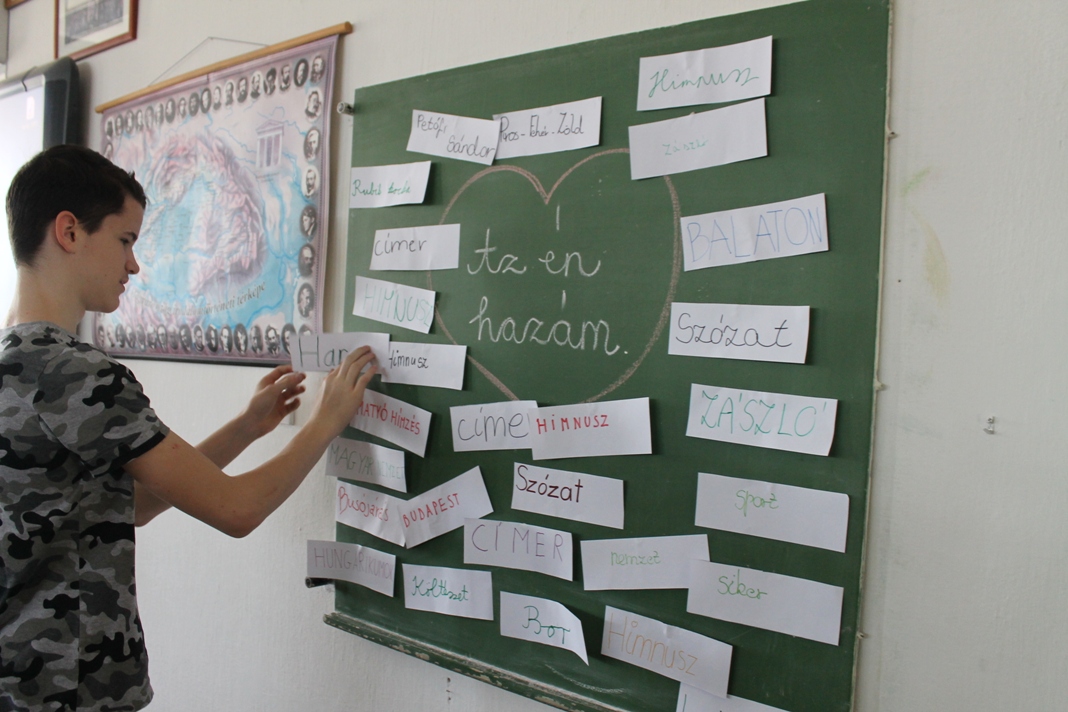 Himnusz
Petőfi
Sándor
Piros-Fehér-Zöld
Zászló
címer
BALATON
Az én
hazám.
HIMNUSZ
Szózat
Himnusz
MATYÓ HÍMZÉS
címe
HIMNUSZ
ZÁSZLÓ
Szózat
Busójárás
BUDAPEST
sport
CÍMER
nemzet
HUNGARIKUMOK
Költészet
siker
Bor
Himnusz